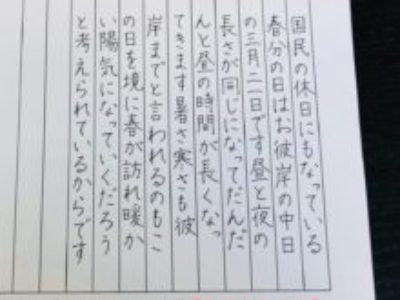 国民の休日にもなっている
春分の日はお彼岸の中日
の三月二一日です昼と夜の
長さが同じになってだんだ
んと昼の時間が長くなっ
てきます暑さ寒さも彼
岸までと言われるのもこ
の日を境に春が訪れ暖か
い陽気になっていくだろう
と考えられているからです